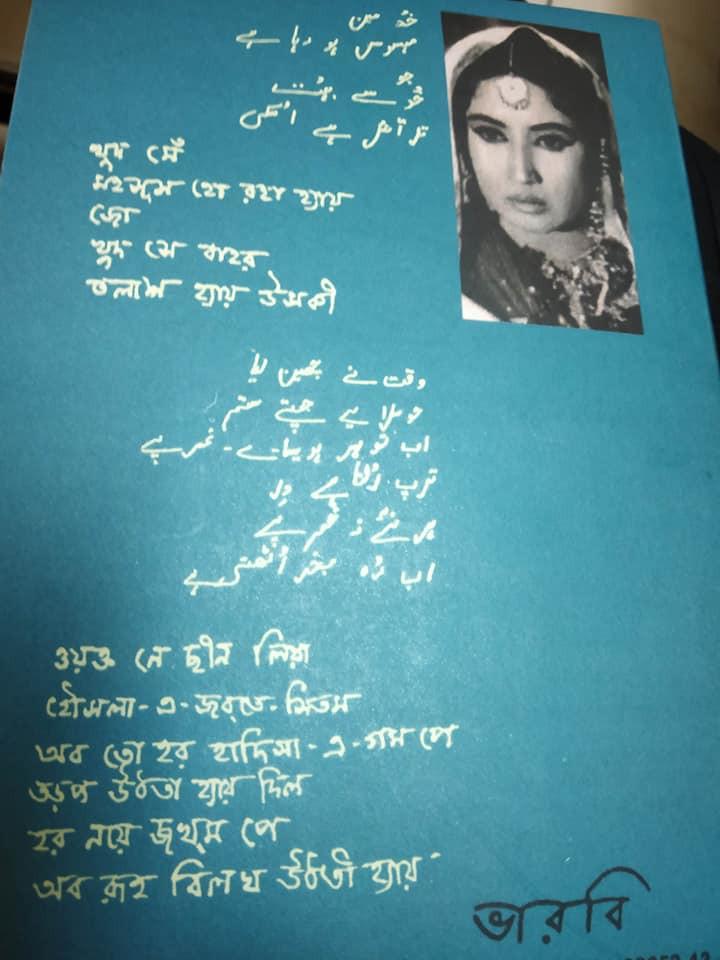 خود میں
محسوس ہو رہا ہے
جو
خود سے باہر
تو تلاش ہے اسکی
খুদ মেঁ
মহসুস হো রহা হ্যায়
জো
খুদ সে বাহর
তলাশ হ্যায় উসকী
وقت نے چھین لیا
حوصلا
اب تو ہر
تڑپ اٹھتا ہے دل
ہر نئے زخم پے
اب روح اٹھتی ہے
ওয়ক্ত নে ছীন লিয়া
হৌসলা-এ-জব্‌তে-সিতম
অব তো হর হাদিসা-এ-গম পে
তড়প উঠতা হ্যায় দিল
হর নয়ে জখ্‌ম পে
অব রূহ বিলখ উঠতী হ্যায়
ভারবি